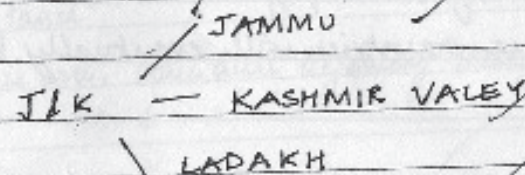 JAMMU
J&K — KASHMIR VALEY
LADAKH